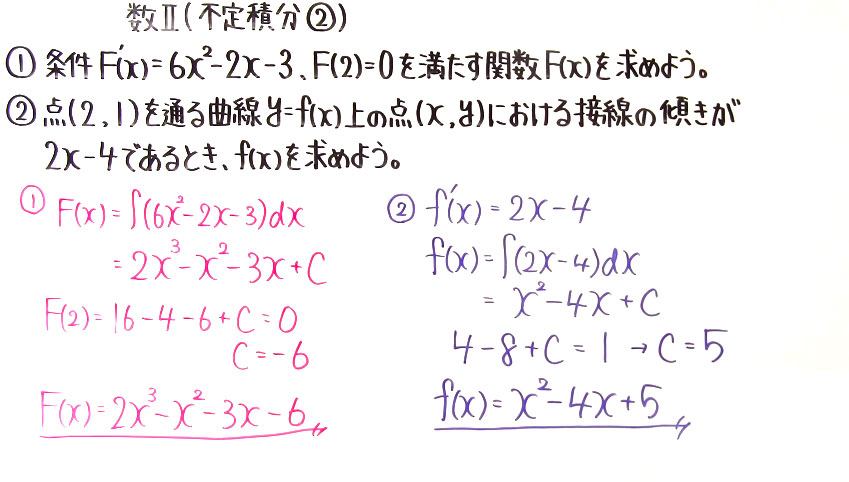 数Ⅱ(不定積分②)
① 条件F'(x)=6x²-2x-3、F(2)=0を満たす関数F(x)を求めよう。
② 点(2,1)を通る曲線y=f(x)上の点(x,y)における接線の傾きが
2x-4であるとき、f(x)を求めよう。
① F(x)=∫(6x²-2x-3)dx
=2x³-x²-3x+C
F(2)=16-4-6+C=0
C=-6
F(x)=2x³-x²-3x-6
② f'(x)=2x-4
f(x)=∫(2x-4)dx
=x²-4x+C
4-8+C=1→C=5
f(x)=x²-4x+5